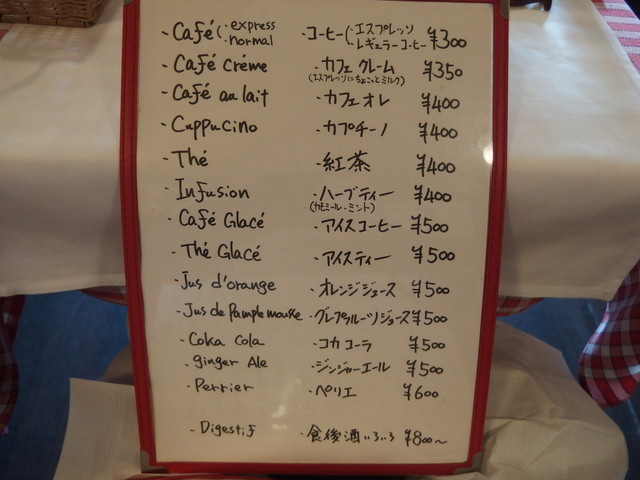 ・Café(・express ・normal ・コーヒー(・エスプレッソ ・レギュラーコーヒー ¥300
・Café Crème ・カフェ クレーム (エスプレッソにちょこっとミルク) ¥350
・Café au lait ・カフェ オレ ¥400
・Cuppucino ・カプチーノ ¥400
・Thé ・紅茶 ¥400
・Infusion ・ハーブティー (カモミール・ミント) ¥400
・Café Glacé ・アイスコーヒー ¥500
・Thé Glacé ・アイスティー ¥500
・Jus d'orange ・オレンジジュース ¥500
・Jus de Pamplemousse ・グレプフルーツジュース ¥500
・Coka Cola ・コカコーラ ¥500
・ginger Ale ・ジンジャーエール ¥500
・Perrier ・ペリエ ¥600
・Digestif ・食後酒いろいろ ¥800〜